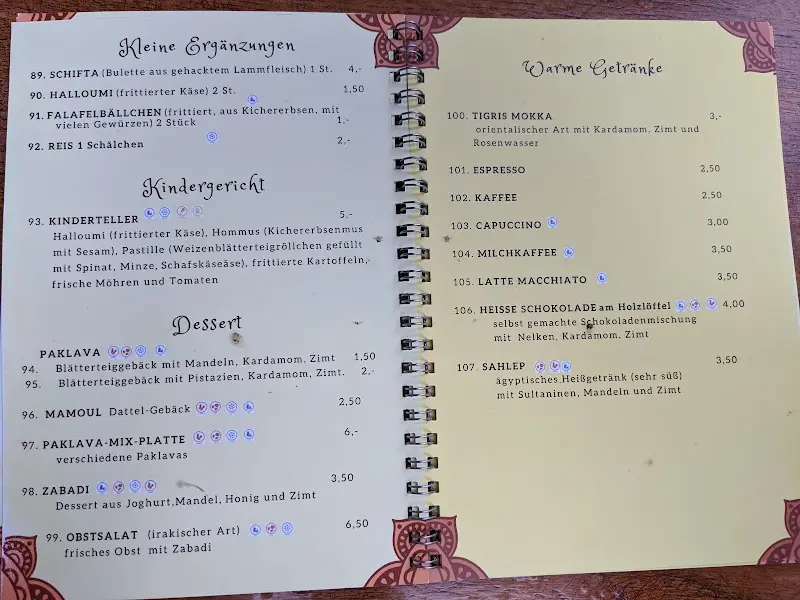 Kleine Ergänzungen
89. SCHIFTA (Bulette aus gehacktem Lammfleisch) 1 St. 4,-
90. HALLOUMI (frittierter Käse) 2 St. 1,50
91. FALAFELBÄLLCHEN (frittiert, aus Kichererbsen, mit
vielen Gewürzen) 2 Stück 1,-
92. REIS 1 Schälchen 2,-
Kindergericht
93. KINDERTELLER 5,-
Halloumi (frittierter Käse), Hommus (Kichererbsenmus
mit Sesam), Pastille (Weizenblätterteigröllchen gefüllt
mit Spinat, Minze, Schafskäseäse), frittierte Kartoffeln,
frische Möhren und Tomaten
Dessert
PAKLAVA
94. Blätterteiggebäck mit Mandeln, Kardamom, Zimt 1,50
95. Blätterteiggebäck mit Pistazien, Kardamom, Zimt. 2,-
96. MAMOUL Dattel-Gebäck 2,50
97. PAKLAVA-MIX-PLATTE 6,-
verschiedene Paklavas
98. ZABADI 3,50
Dessert aus Joghurt,Mandel, Honig und Zimt
99. OBSTSALAT (irakischer Art) 6,50
frisches Obst mit Zabadi
Warme Getränke
100. TIGRIS MOKKA 3,-
orientalischer Art mit Kardamom, Zimt und
Rosenwasser
101. ESPRESSO 2,50
102. KAFFEE 2,50
103. CAPUCCINO 3,00
104. MILCHKAFFEE 3,50
105. LATTE MACCHIATO 3,50
106. HEISSE SCHOKOLADE am Holzlöffel 4,00
selbst gemachte Schokoladenmischung
mit Nelken, Kardamom, Zimt
107. SAHLEP 3,50
ägyptisches Heißgetränk (sehr süß)
mit Sultaninen, Mandeln und Zimt